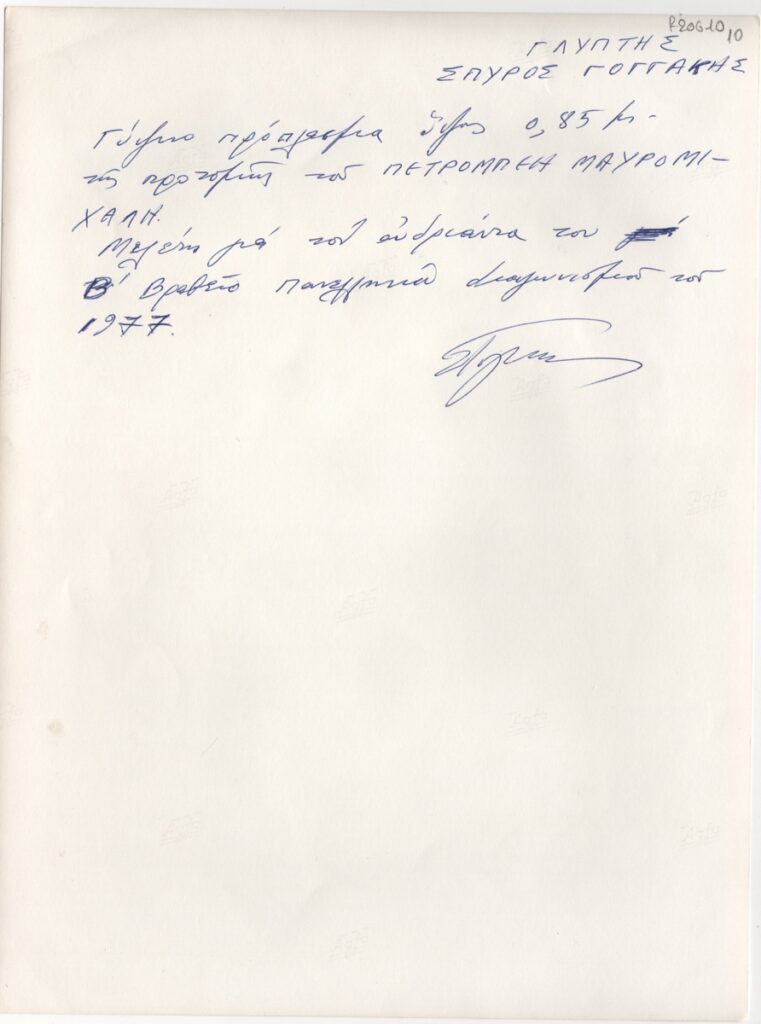 ΓΛΥΠΤΗΣ
ΣΠΥΡΟΣ ΓΟΓΓΑΚΗΣ
Γύψινο πρόπλασμα ὕψος 0,85 μ.
τῆς προτομῆς τοῦ ΠΕΤΡΟΜΠΕΗ ΜΑΥΡΟΜΙ-
ΧΑΛΗ.
Μελέτη γιά τόν ἀνδριάντα του
Β' Βραβεῖο Πανελληνίου διαγωνισμοῦ τοῦ
1977.